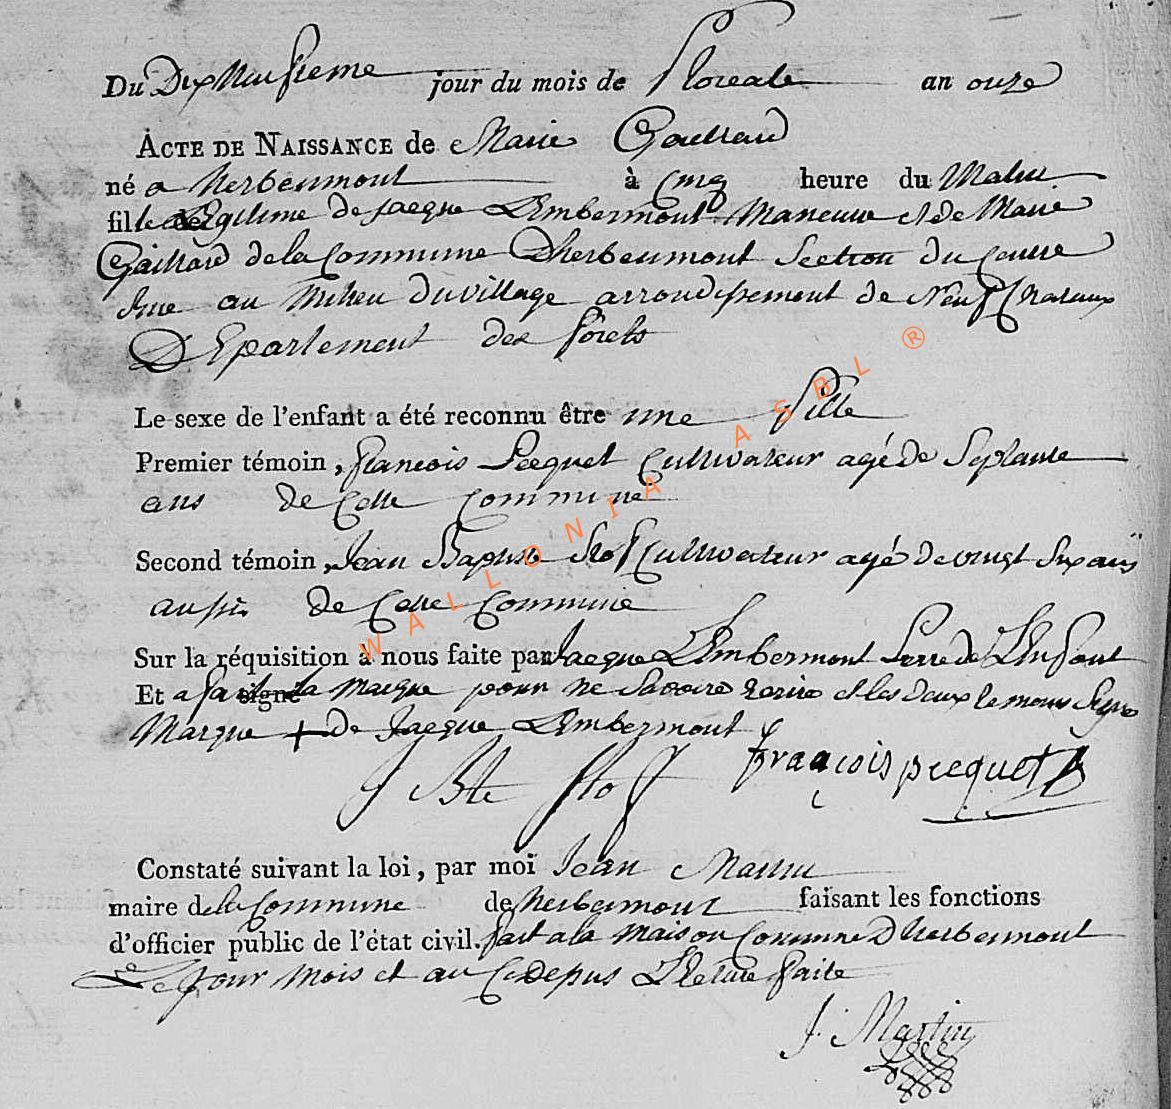 Du Dix Neufieme jour du mois de Floreale an onze
ACTE DE NAISSANCE de Marie Gaillard
né a herbeumont à cinq heure du Matin
fille Legitime de Jacque Lembermont Maneuvre et de Marie
Gaillard de la Commune Dherbeumont Section du Centre
au Milieu du village arrondissement de Neufchateaux
Departement des forets
Le sexe de l'enfant a été reconnu être une fille
Premier témoin, francois Pecquet Cultivateur agé de Septante
ans de Cette Commune
Second témoin, Jean Baptiste Stof Cultivateur agé de vingt Six ans
aussi de Cette Commune
Sur la réquisition à nous faite par Jacque Lembermont Perre de L'Enfant
Et a fait signé la Marque pour ne Savoire Ecrire et les deux temoins Signé
Marque + de Jacque Lembermont
J Bte Stof françois pecquet
Constaté suivant la loi, par moi Jean Martin
maire de la Commune de herbeumont faisant les fonctions
d'officier public de l'état civil. fait a la Maison Commune Dherbeumont
Le Jour Mois et an Cy Depus Lecture faite
J. Martin
WALLONIA ASBL ®